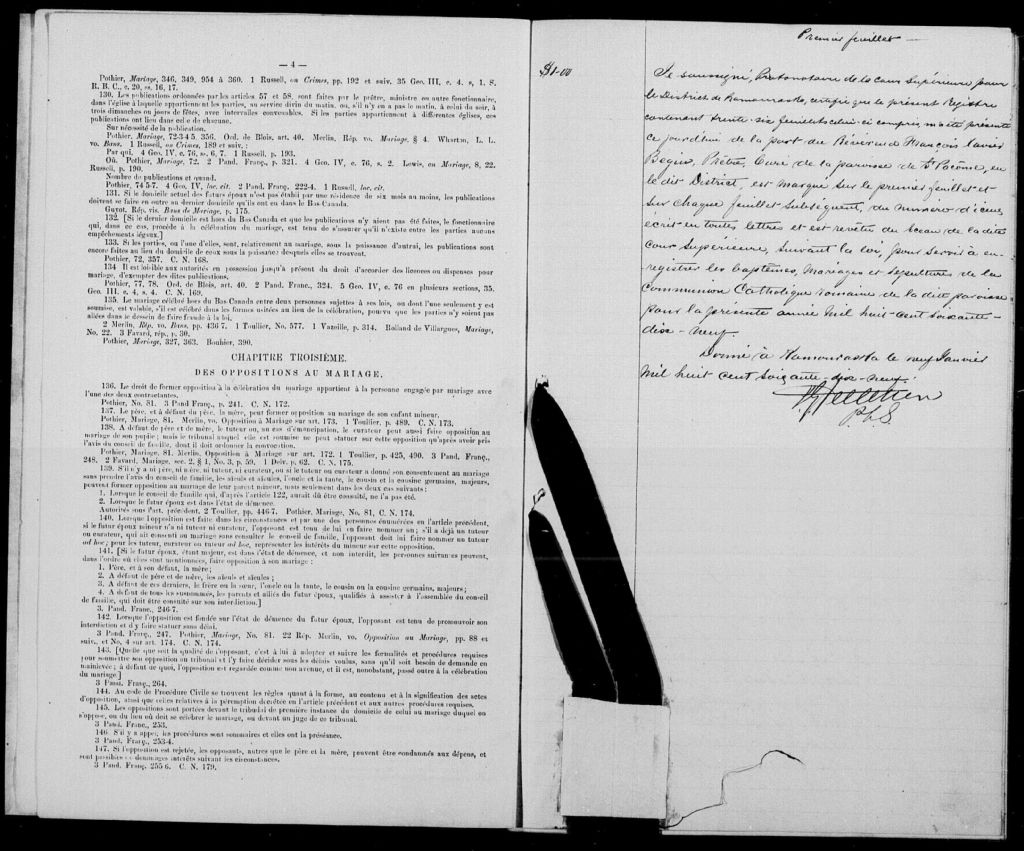 — 4 —
Pothier, Mariage, 346, 349, 954 à 360. 1 Russell, on Crimes, pp. 192 et suiv. 35 Geo. III, c. 4, s, 1, S.
R. B. C., c. 20, ss. 16, 17.
130. Les publications ordonnées par les articles 57 et 58, sont faites par le prêtre, ministre ou autre fonctionnaire,
dans l'église à laquelle appartiennent les parties, au service divin du matin, ou, s'il n'y en a pas le matin, à celui du soir, à
trois dimanches ou jours de fêtes, avec intervalles convenables. Si les parties appartiennent à différentes églises, ces
publications ont lieu dans celle de chacune.
Sur nécessité de la publication.
Pothier, Mariage, 72-3-4 5, 356. Ord. de Blois, art. 40. Merlin, Rép. vo. Mariage, § 4. Wharton, L. L.
vo. Bans. 1 Russell, on Crimes, 189 et suiv.;
Par qui, 4 Geo. IV, c. 76, ss. 6, 7. 1 Russell, p. 193.
Où. Pothier, Mariage, 72. 2 Pand. Franç., p. 321. 4 Geo. IV, c. 76, s. 2. Lewis, on Mariage, 8, 22.
Russell, p. 190.
Nombre de publications et quand.
Pothier, 74 5-7. 4 Geo. IV, loc. cit. 2 Pand. Franç., 222-4. 1 Russell, loc. cit.
131. Si le domicile actuel des futurs époux n'est pas établi par une résidence de six mois au moins, les publications
doivent se faire en outre au dernier domicile qu'ils ont eu dans le Bas Canada.
Guyot, Rép. vis. Bans de Mariage, p. 175.
132. [Si le dernier domicile est hors du Bas Canada et que les publications n'y aient pas été faites, le fonctionnaire
qui, dans ce cas, procède à la célébration du mariage, est tenu de s'assurer qu'il n'existe entre les parties aucuns
empêchements légaux.]
133. Si les parties, ou l'une d'elles, sont, relativement au mariage, sous la puissance d'autrui, les publications sont
encore faites au lieu du domicile de ceux sous la puissance desquels elles se trouvent.
Pothier, 72, 357. C. N. 168.
134 Il est loisible aux autorités en possession jusqu'à présent du droit d'accorder des licences ou dispenses pour
mariage, d'exempter des dites publications.
Pothier, 77, 78. Ord. de Blois, art. 40. 2 Pand. Franc., 324. 5 Geo. IV, c. 76 en plusieurs sections, 35.
Geo. III, c. 4, s. 4. C. N. 169.
135. Le mariage célébré hors du Bas Canada entre deux personnes sujettes à ses lois, ou dont l'une seulement y est
soumise, est valable, s'il est célébré dans les formes usitées au lieu de la célébration, pourvu que les parties n'y soient pas
allées dans le dessein de faire fraude à la loi.
2 Merlin, Rép. vo. Bans, pp. 436 7. 1 Toullier, No. 577. 1 Vazeille, p. 314. Rolland de Villargues, Mariage,
No. 22. 3 Favard, rép., p. 30.
Pothier, Mariage, 327, 363. Bouhier, 390.
CHAPITRE TROISIÈME.
DES OPPOSITIONS AU MARIAGE.
136. Le droit de former opposition à la célébration du mariage appartient à la personne engagée par mariage avec
l'une des deux contractantes.
Pothier, No. 81. 3 Pand Franç., p. 241. C. N. 172.
137. Le père, et à défaut du père, la mère, peut former opposition au mariage de son enfant mineur.
Pothier, Mariage, 81. Merlin, vo. Opposition à Mariage sur art. 173. 1 Toullier, p. 489. C. N. 173.
138. A défaut de père et de mère, le tuteur ou, au cas d'émancipation, le curateur peut aussi faire opposition au
mariage de son pupile; mais le tribunal auquel elle est soumise ne peut statuer sur cette opposition qu'après avoir pris
l'avis du conseil de famille, dont il doit ordonner la convocation.
Pothier, Mariage, 81. Merlin, Opposition à Mariage sur art. 172. 1 Toullier, p. 425, 490. 3 Pand. Franç.,
248. 2 Favard, Mariage, sec. 2, § 1, No. 3, p. 59. 1 Delv. p. 62. C. N. 175.
139. S'il n'y a ni père, ni mère, ni tuteur, ni curateur, ou si le tuteur ou curateur a donné son consentement au mariage
sans prendre l'avis du conseil de famille, les aïeuls et aïeules, l'oncle et la tante, le cousin et la cousine germains, majeurs,
peuvent former opposition au mariage de leur parent mineur, mais seulement dans les deux cas suivants:
1. Lorsque le conseil de famille qui, d'après l'article 122, aurait dû être consulté, ne l'a pas été.
2. Lorsque le futur époux est dans l'état de démence.
Autorités sous l'art. précédent. 2 Toullier, pp. 446-7. Pothier, Mariage, No. 81, C. N. 174.
140. Lorsque l'opposition est faite dans les circonstances et par une des personnes énumérées en l'article précédent,
si le futur époux mineur n'a ni tuteur ni curateur, l'opposant est tenu de lui en faire nommer un; s'il a déjà un tuteur
ou curateur, qui ait consenti au mariage sans consulter le conseil de famille, l'opposant doit lui faire nommer un tuteur
ad hoc; pour les tuteur, curateur ou tuteur ad hoc, représenter les intérêts du mineur sur cette opposition.
141. [Si le futur époux, étant majeur, est dans l'état de démence, et non interdit, les personnes suivantes peuvent,
dans l'ordre où elles sont mentionnées, faire opposition à son mariage:
1. Père, et à son défaut, la mère;
2. A défaut de père et de mère, les aïeuls et aïeules;
3. A défaut de ces derniers, le frère ou la sœur, l'oncle ou la tante, le cousin ou la cousine germains, majeurs;
4. A défaut de tous les susnommés, les parents et alliés du futur époux, qualifiés à assister à l'assemblée du conseil
de famille, qui doit être consulté sur son interdiction.]
3. Pand. Franç., 246-7.
142. Lorsque l'opposition est fondée sur l'état de démence du futur époux, l'opposant est tenu de promouvoir son
interdiction et d'y faire statuer sans délai.
3 Pand. Franç., 247. Pothier, Mariage, No. 81. 22 Rép. Merlin, vo. Opposition au Mariage, pp. 88 et
suiv., et No. 4 sur art. 174. C. N. 174.
143. [Quelle que soit la qualité de l'opposant, c'est à lui à adopter et suivre les formalités et procédures requises
pour soumettre son opposition au tribunal et l'y faire décider sous les délais voulus, sans qu'il soit besoin de demande en
mainlevée; à défaut de quoi, l'opposition est regardée comme non avenue, et il est, nonobstant, passé outre à la célébration
du mariage.]
3 Pand. Franç., 264.
144. Au code de Procédure Civile se trouvent les règles quant à la forme, au contenu et à la signification des actes
d'opposition, ainsi que celles relatives à la péremption décrétée en l'article précédent et aux autres procédures requises.
145. Les oppositions sont portées devant le tribunal de première instance du domicile de celui au mariage duquel on
s'oppose, ou du lieu où doit se célébrer le mariage, ou devant un juge de ce tribunal.
3 Pand. Franc., 253.
146 S'il y a appel, les procédures sont sommaires et elles ont la préséance.
3 Pand. Franç., 253-4.
147. Si l'opposition est rejetée, les opposants, autres que le père et la mère, peuvent être condamnés aux dépens, et
sont passibles de dommages intérêts suivant les circonstances.
3 Pand. Franç. 255 6. C. N. 179.
Premier feuillet —
$1-00
Je soussigné, Protonotaire de la cour Supérieure pour
le District de Kamouraska, certifie que le présent Registre
contenant trente-six feuillets celui-ci compris, m'a été présenté
ce jourd'hui de la part du Révérend François Xavier
Bégin, Prêtre, Curé de la paroisse de St Pacôme, en
le dit District, est marqué sur le premier feuillet et
sur chaque feuillet subséquent, du numéro d'iceux,
écrit en toutes lettres et est revêtu du Sceau de la dite
cour Supérieure, suivant la loi, pour servir à en-
registrer les baptêmes, Mariages et Sépultures de la
Communion Catholique romaine de la dite paroisse
pour la présente année Mil huit-cent soixante-
dix-neuf.
Donné à Kamouraska le neuf Janvier
Mil huit cent soixante-dix-neuf.
Pelletier
P. C. S.